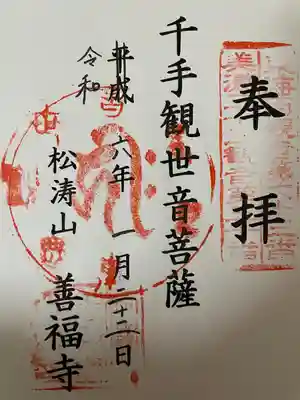 奉拝
千手観世音菩薩
平成
令和
六年 一月二十二日
松涛山 善福寺